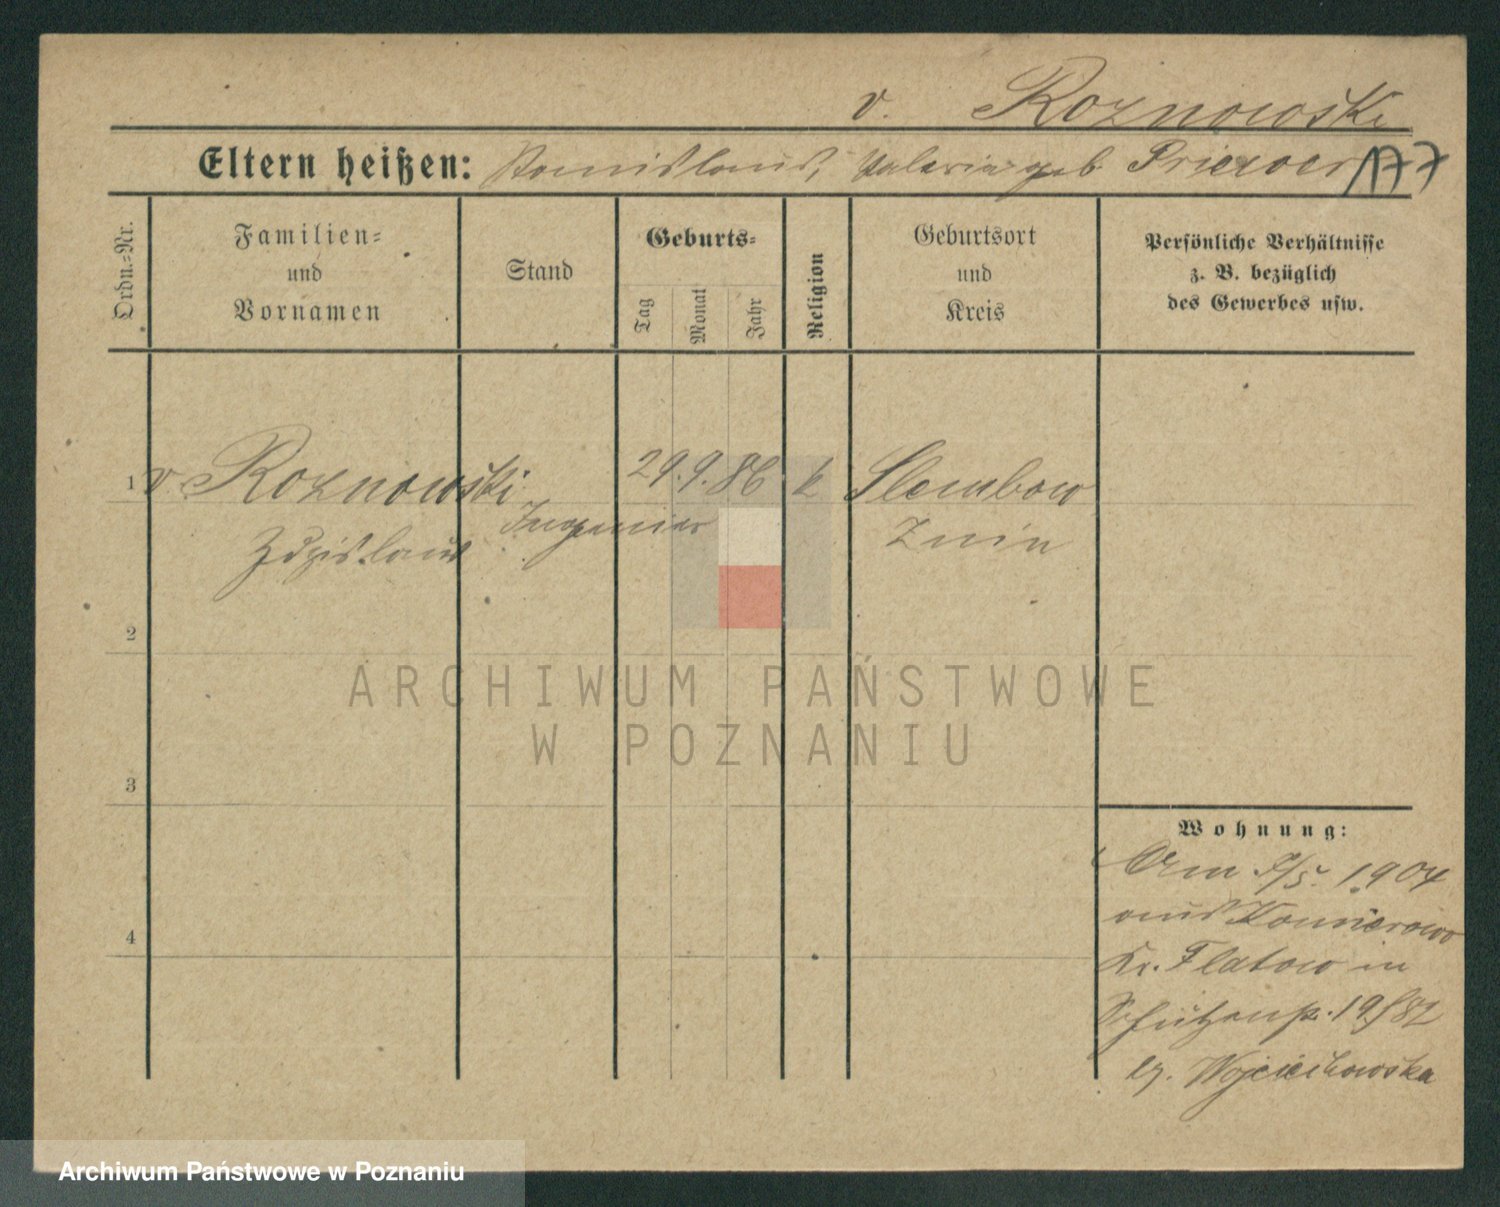 v. Roznowski
Eltern heißen: Stanislaus, Valeria geb. 177
Ordn.-Nr.
Familien-
und
Vornamen
Stand
Geburts-
Tag
Monat
Jahr
Religion
Geburtsort
und
Kreis
Persönliche Verhältnisse
z. B. bezüglich
des Gewerbes usw.
1 v Roznowski 29.9.86 k Slembowo
Zdzislaus Ingenieur Znin
2
3
4
Wohnung:
Am 1904
aus Komierowo
Kr. Flatow in
Schützenstr. 19
Wojciechowska
ARCHIWUM PAŃSTWOWE
W POZNANIU
Archiwum Państwowe w Poznaniu